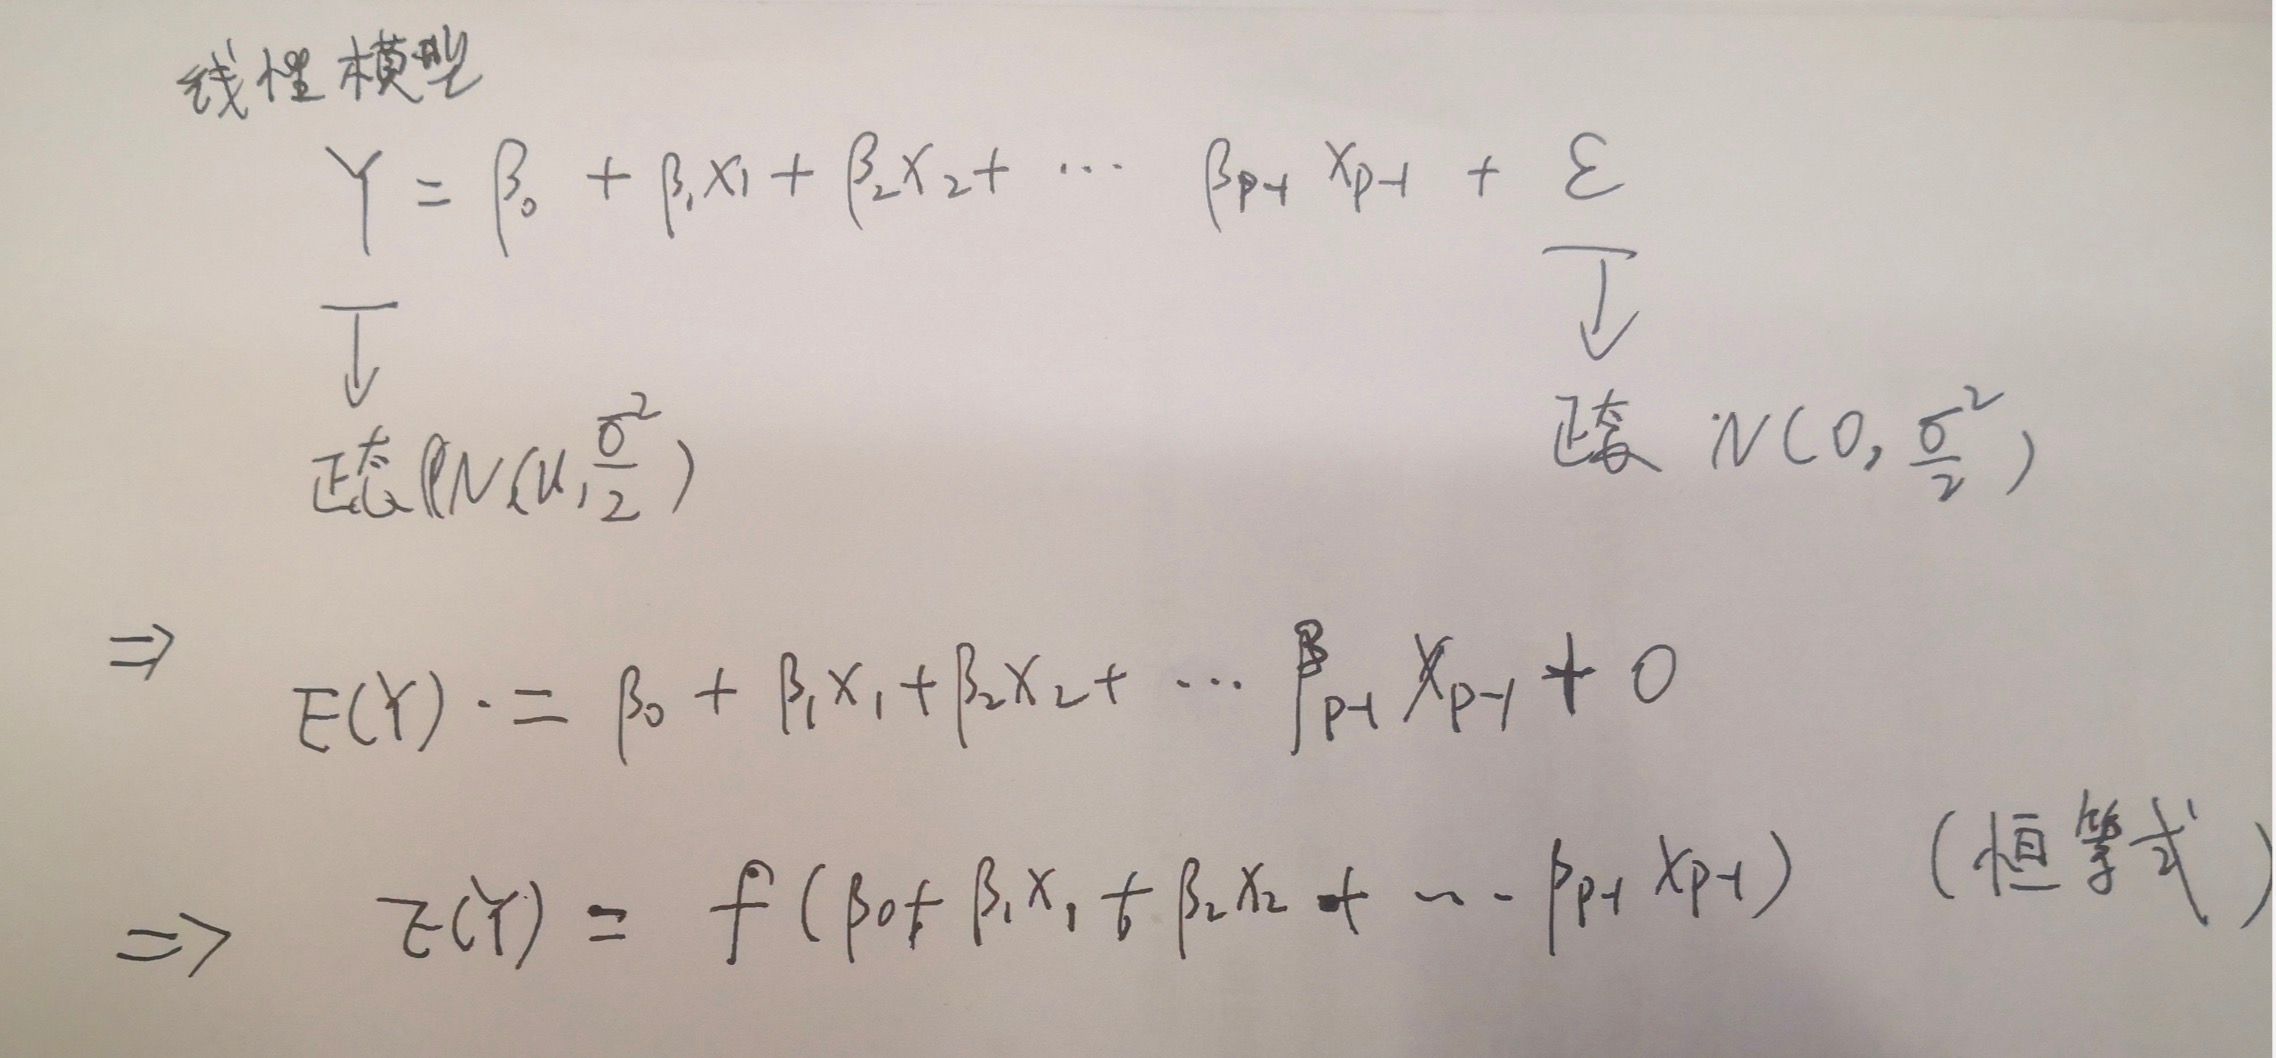 线性模型
Y = β₀ + β₁x₁ + β₂x₂ + ··· βₚ₋₁ xₚ₋₁ + ε
正态 N(μ, σ²/2) 正态 N(0, σ²/2)
⇒ E(Y) · = β₀ + β₁x₁ + β₂x₂ + ··· βₚ₋₁ xₚ₋₁ + 0
⇒ E(Y) = f(β₀ + β₁x₁ + β₂x₂ + ··· βₚ₋₁ xₚ₋₁) (恒等式)